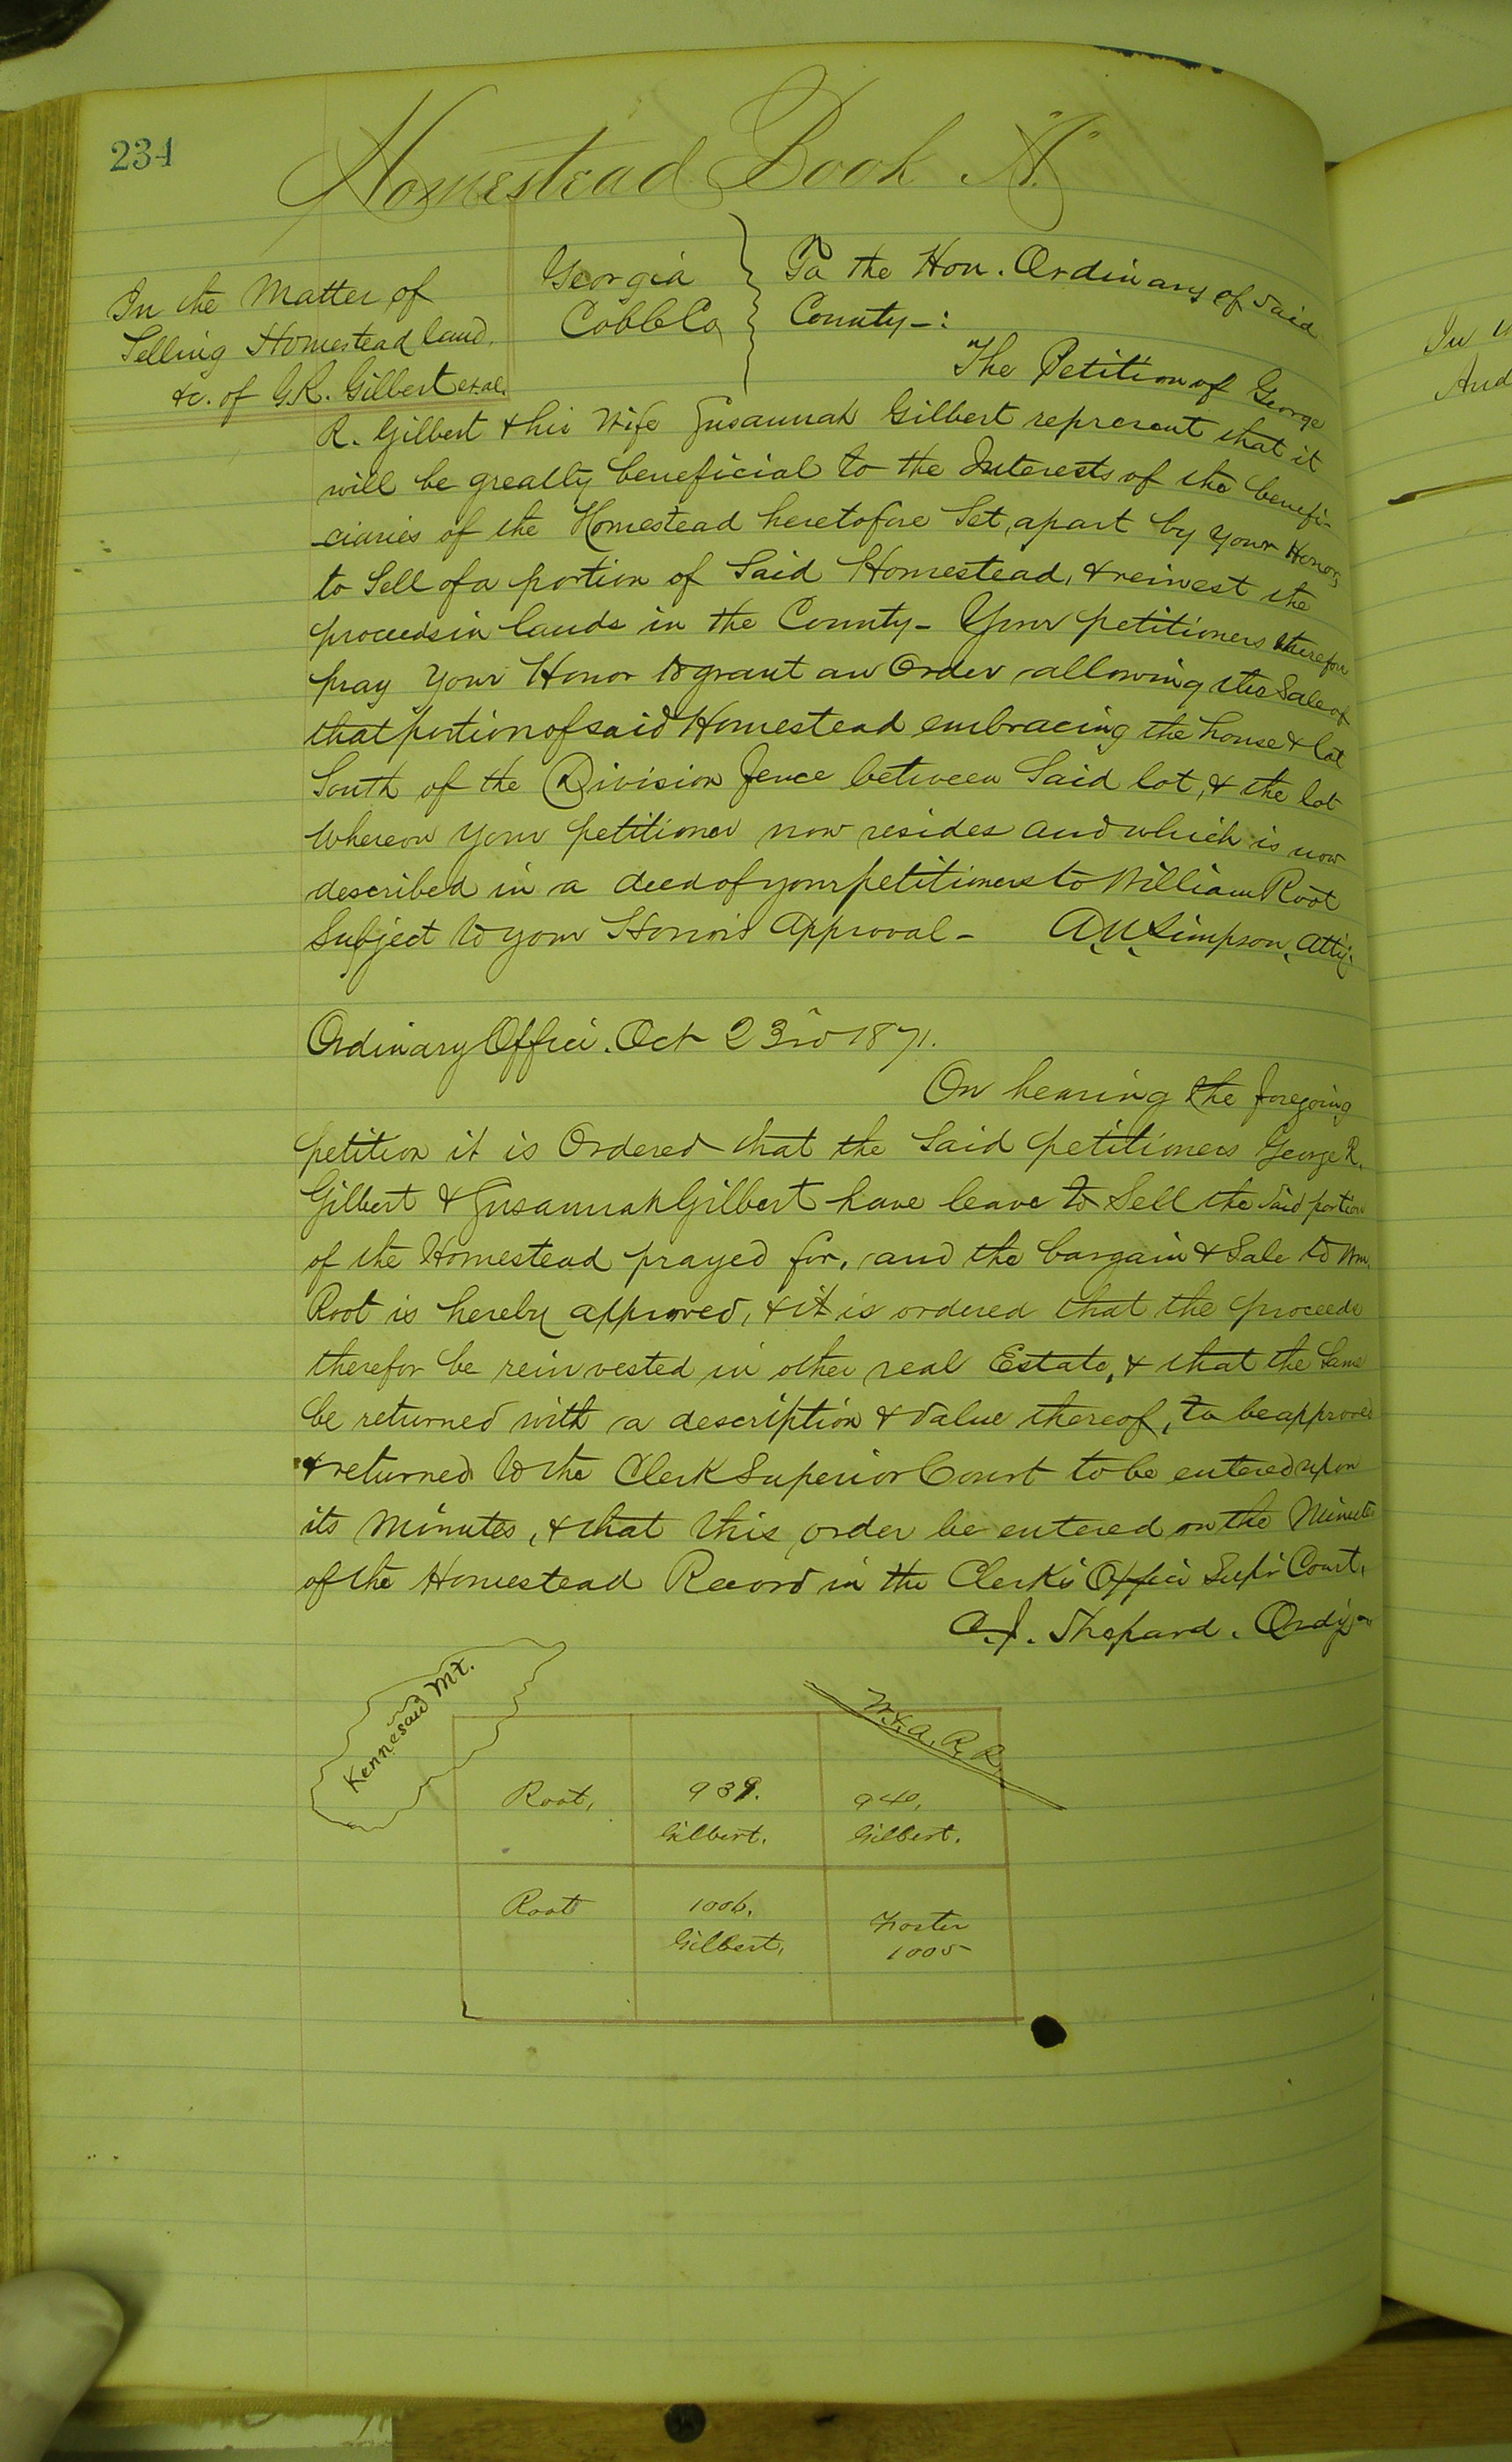 234
Homestead Book "A"
In the Matter of
Selling Homestead land.
&c. of G.R. Gilbert et al.
Georgia
Cobb Co
To the Hon. Ordinary of Said
County-:
The Petition of George
R. Gilbert & his Wife Susannah Gilbert represent that it
will be greatly beneficial to the Interests of the benefi-
ciaries of the Homestead heretofore Set apart by your Honor,
to Sell of a portion of Said Homestead, & reinvest the
proceeds in lands in the County- Your petitioners therefore
pray Your Honor to grant an Order allowing the Sale of
that portion of said Homestead embracing the house & lot
South of the Division fence between Said lot, & the lot
Whereon your petitioner now resides and which is now
described in a deed of your petitioners to William Root
Subject to your Honor's Approval- A.N. Simpson, Atty.
Ordinary Office. Oct 23rd 1871.
On hearing the foregoing
petition it is Ordered that the Said petitioners George R.
Gilbert & Susannah Gilbert have leave to Sell the Said portion
of the Homestead prayed for, and the bargain & Sale to Wm.
Root is hereby approved, & it is ordered that the proceeds
therefor be reinvested in other real Estate, & that the Same
be returned with a description & Value thereof, to be approved
& returned to the Clerk Superior Court to be entered upon
its Minutes, & that this order be entered on the Minutes
of the Homestead Record in the Clerk's Office Supr Court.
A.J. Shepard. Ordy
Kennesaw Mt.
W. & A. R. R.
Root, 939. 940,
Gilbert. Gilbert.
Root 1006. Foster
Gilbert, 1005
In
And